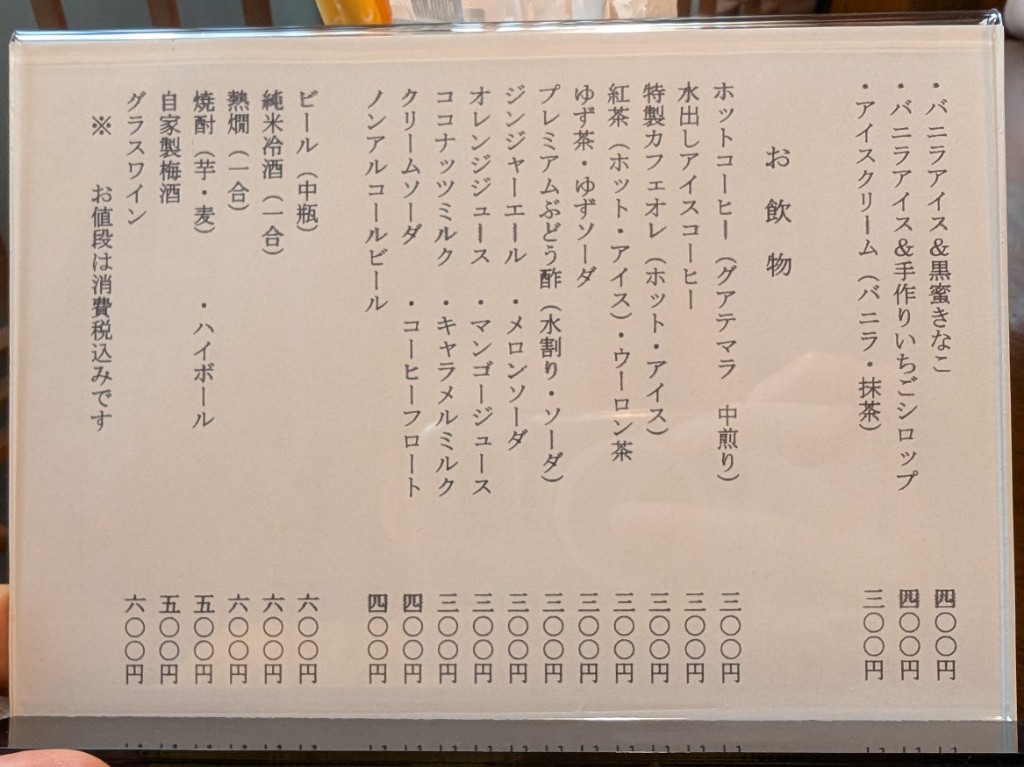 ・バニラアイス&黒蜜きなこ 四〇〇円
・バニラアイス&手作りいちごシロップ 四〇〇円
・アイスクリーム（バニラ・抹茶） 三〇〇円
お飲物
ホットコーヒー（グアテマラ 中煎り） 三〇〇円
水出しアイスコーヒー 三〇〇円
特製カフェオレ（ホット・アイス） 三〇〇円
紅茶（ホット・アイス）・ウーロン茶 三〇〇円
ゆず茶・ゆずソーダ 三〇〇円
プレミアムぶどう酢（水割り・ソーダ） 三〇〇円
ジンジャーエール ・メロンソーダ 三〇〇円
オレンジジュース ・マンゴージュース 三〇〇円
ココナッツミルク ・キャラメルミルク 三〇〇円
クリームソーダ ・コーヒーフロート 四〇〇円
ノンアルコールビール 四〇〇円
ビール（中瓶） 六〇〇円
純米冷酒（一合） 六〇〇円
熱燗（一合） 六〇〇円
焼酎（芋・麦） ・ハイボール 五〇〇円
自家製梅酒 五〇〇円
グラスワイン 六〇〇円
※ お値段は消費税込みです